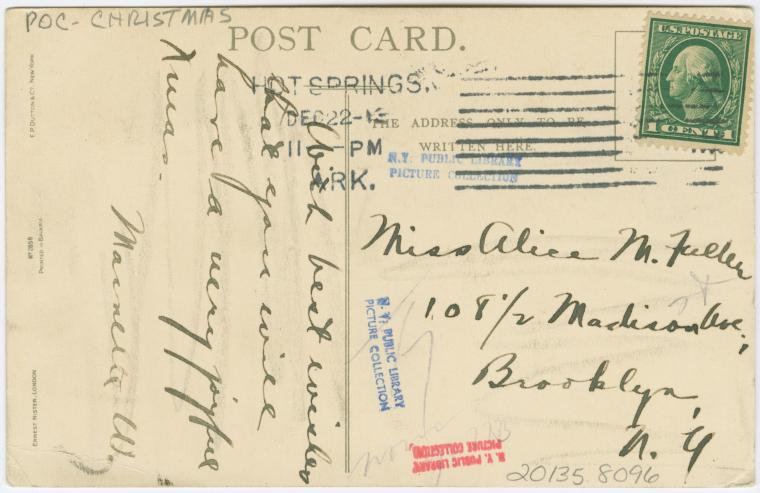 POC- CHRISTMAS
POST CARD.
HOT SPRINGS,
DEC 22
11 -PM
ARK.
THE ADDRESS ONLY TO BE
WRITTEN HERE.
U.S. POSTAGE
1 CENT 1
N.Y. PUBLIC LIBRARY
PICTURE COLLECTION
With best wishes
that you will
have a very joyful
Xmas.
W.
Miss Alice M. Fuller
108 1/2 Madison Ave,
Brooklyn,
N. Y
N.Y. PUBLIC LIBRARY
PICTURE COLLECTION
N. Y. PUBLIC LIBRARY
PICTURE COLLECTION
20135.8096
E.P. DUTTON & CO. NEW YORK
Nº 2858
PRINTED IN BAVARIA
ERNEST NISTER, LONDON